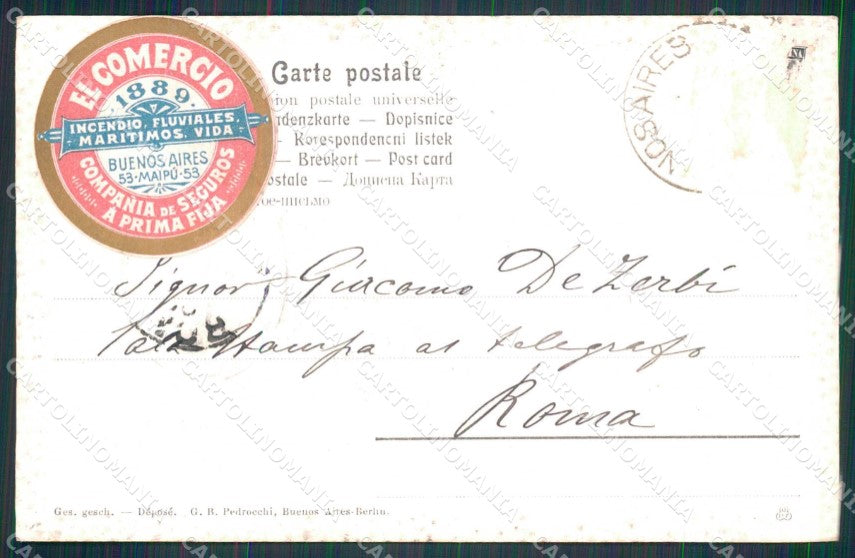 EL COMERCIO
1889.
INCENDIO, FLUVIALES,
MARITIMOS, VIDA
BUENOS AIRES
53-MAIPÚ-53
COMPAÑIA DE SEGUROS
A PRIMA FIJA
Carte postale
ion postale universelle
denzkarte — Dopisnice
— Korespondencni listek
— Brevkort — Post card
ostale — Дописна Карта
ое-письмо
AIRES
Signor Giacomo De Zerbi
Sala Stampa al telegrafo
Roma
Ges. gesch. — Déposé. G. B. Pedrocchi, Buenos Aires-Berlin.
CARTOLINOMANIA